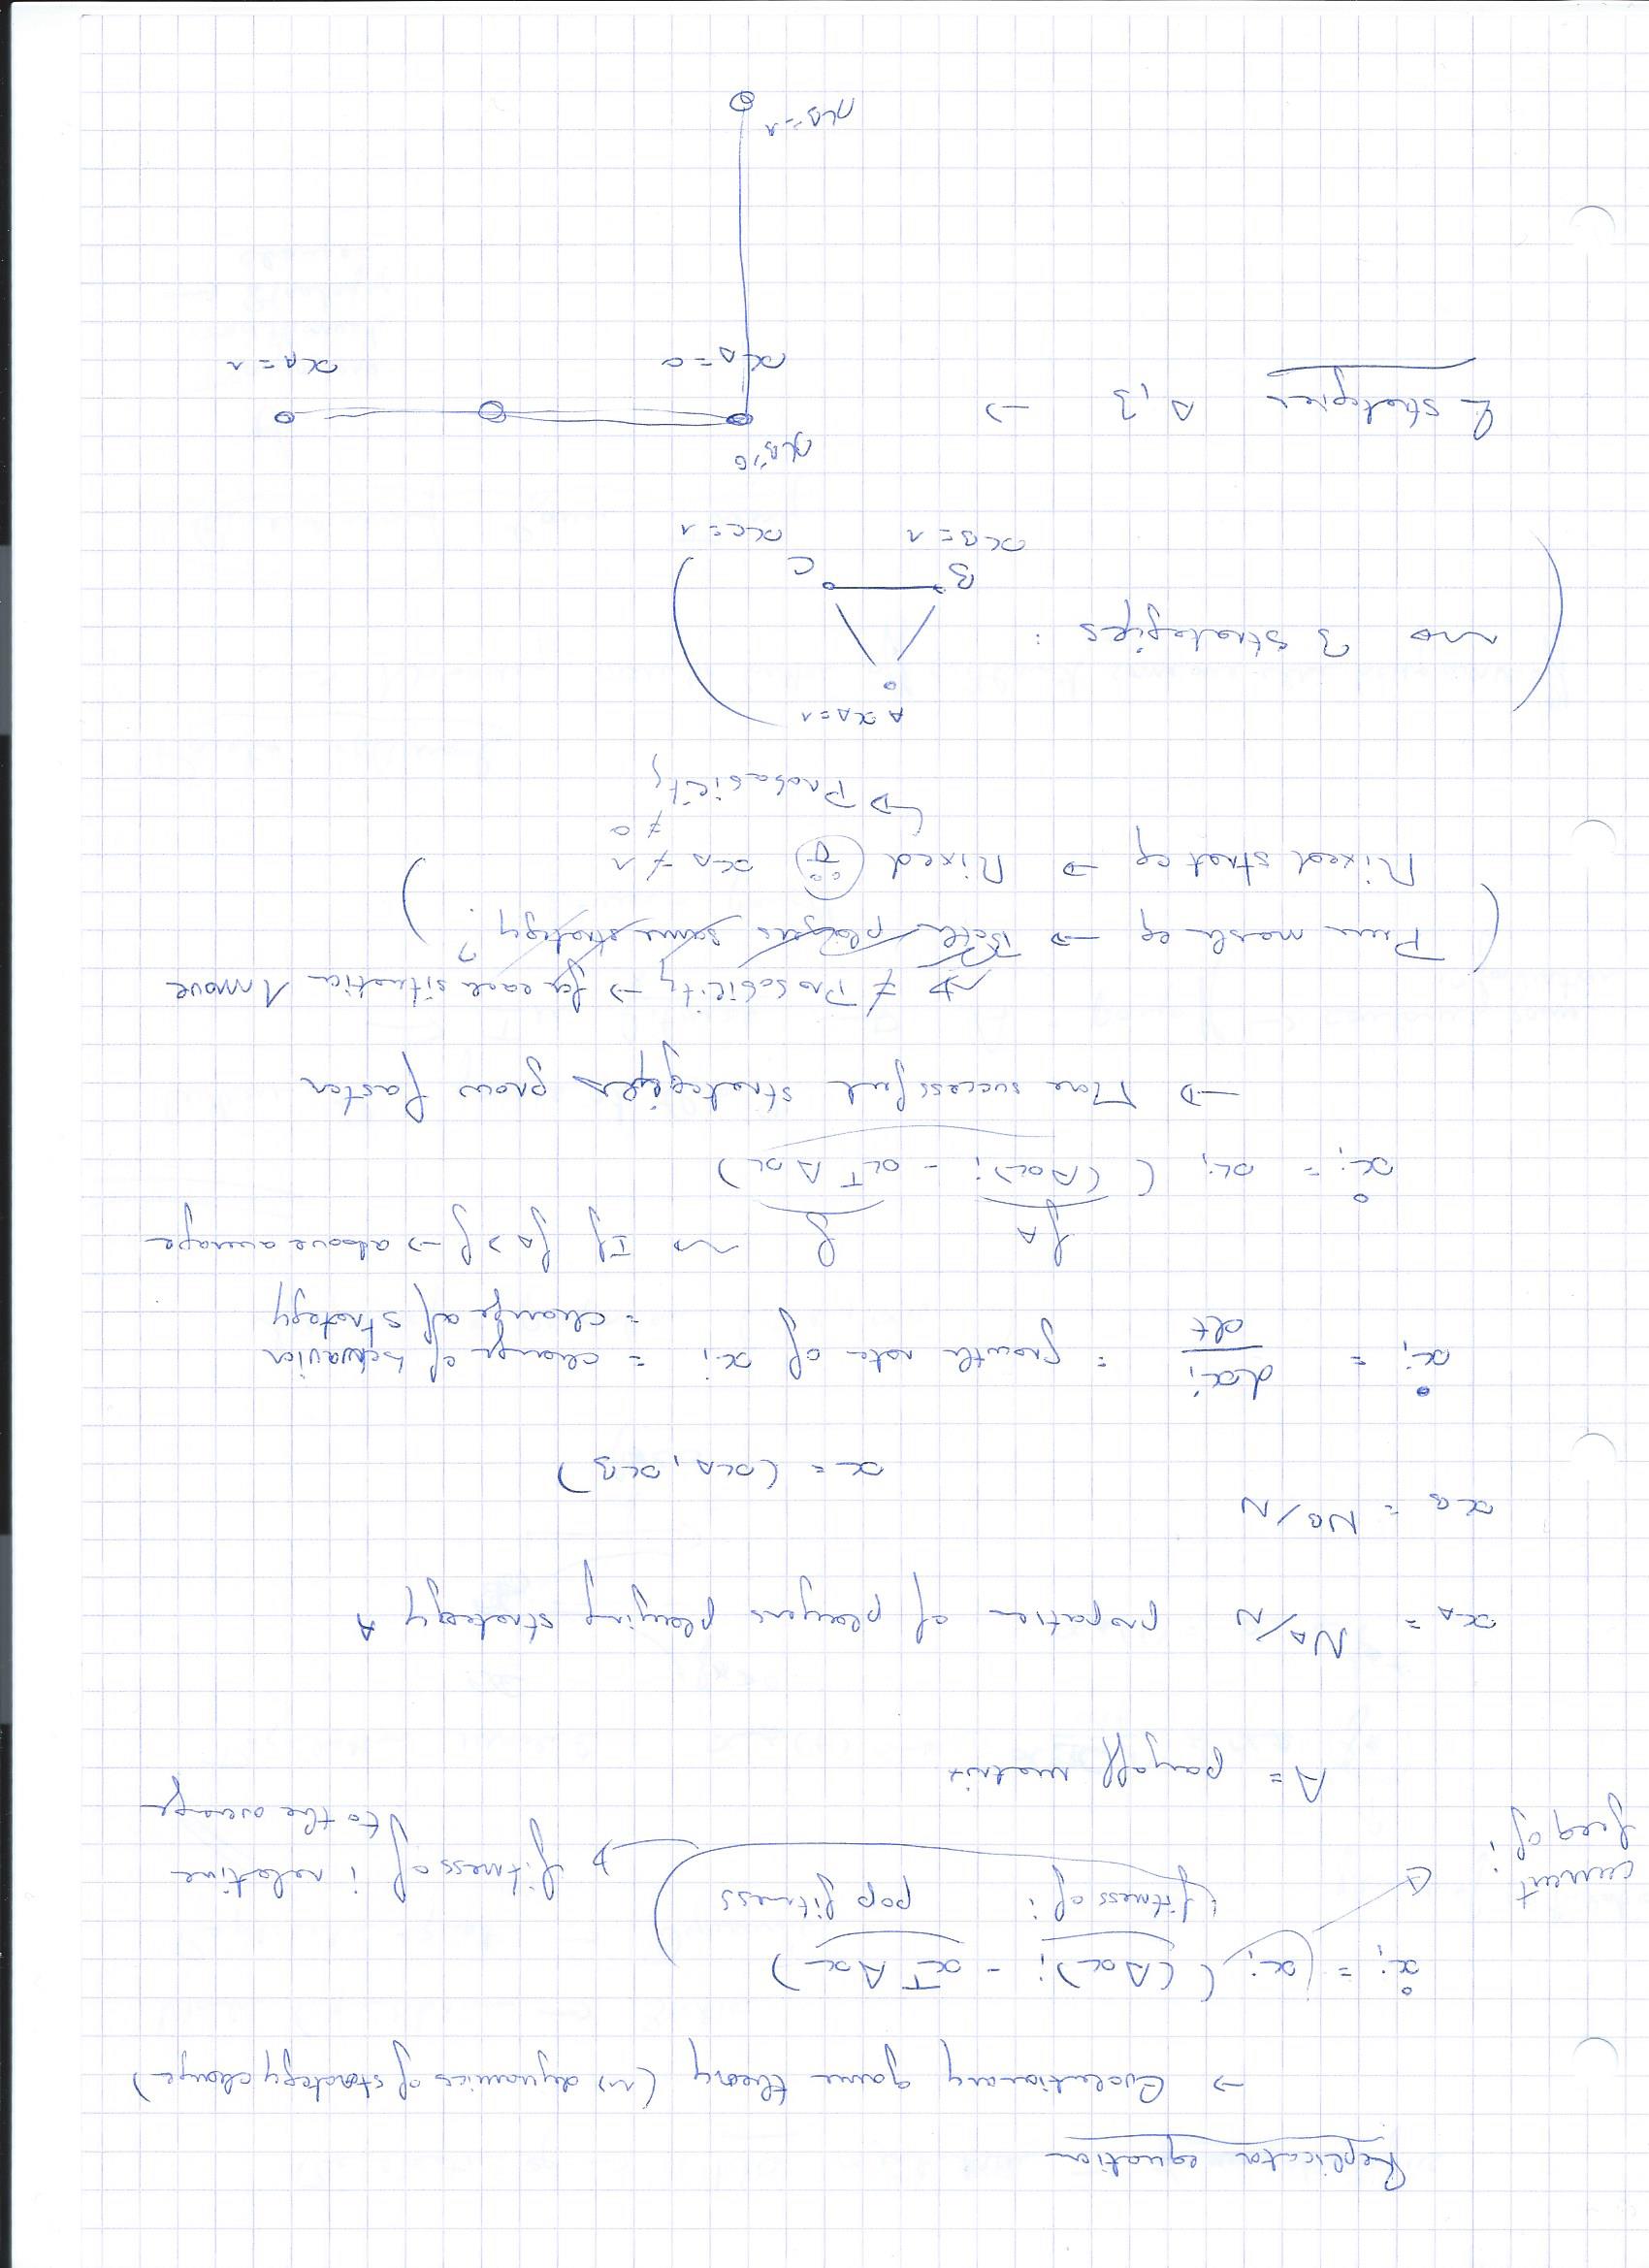 Replicator equation
→ Evolutionary game theory (⇝ dynamics of strategy change)
ẋi = xi ((Ax)i - xᵀAx)
fitness of i pop fitness
current freq of i
fitness of i relative
to the average
A = payoff matrix
xA = NA/N proportion of players playing strategy A
xB = NB/N
x = (xA, xB)
ẋi = dxi/dt = growth rate of xi = change of behavior
= change of strategy
fA f ⇝ If fA > f → above average
ẋi = xi ((Ax)i - xᵀAx)
→ More successful strategies grow faster
≠ Probability → for each situation 1 move
(Pure nash eq → Both players same strategy?
Mixed strat eq → Mixed xA ≠ 1)
≠ 0
↳ Probability
A xA=1
(⇝ 3 strategies :
B C)
xB=1 xC=1
xB=0
2 strategies A,B →
xA=0 xA=1
xB=1